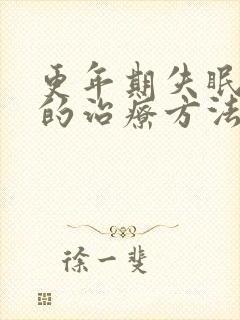 更年期失眠
的治疗方法
徐一斐